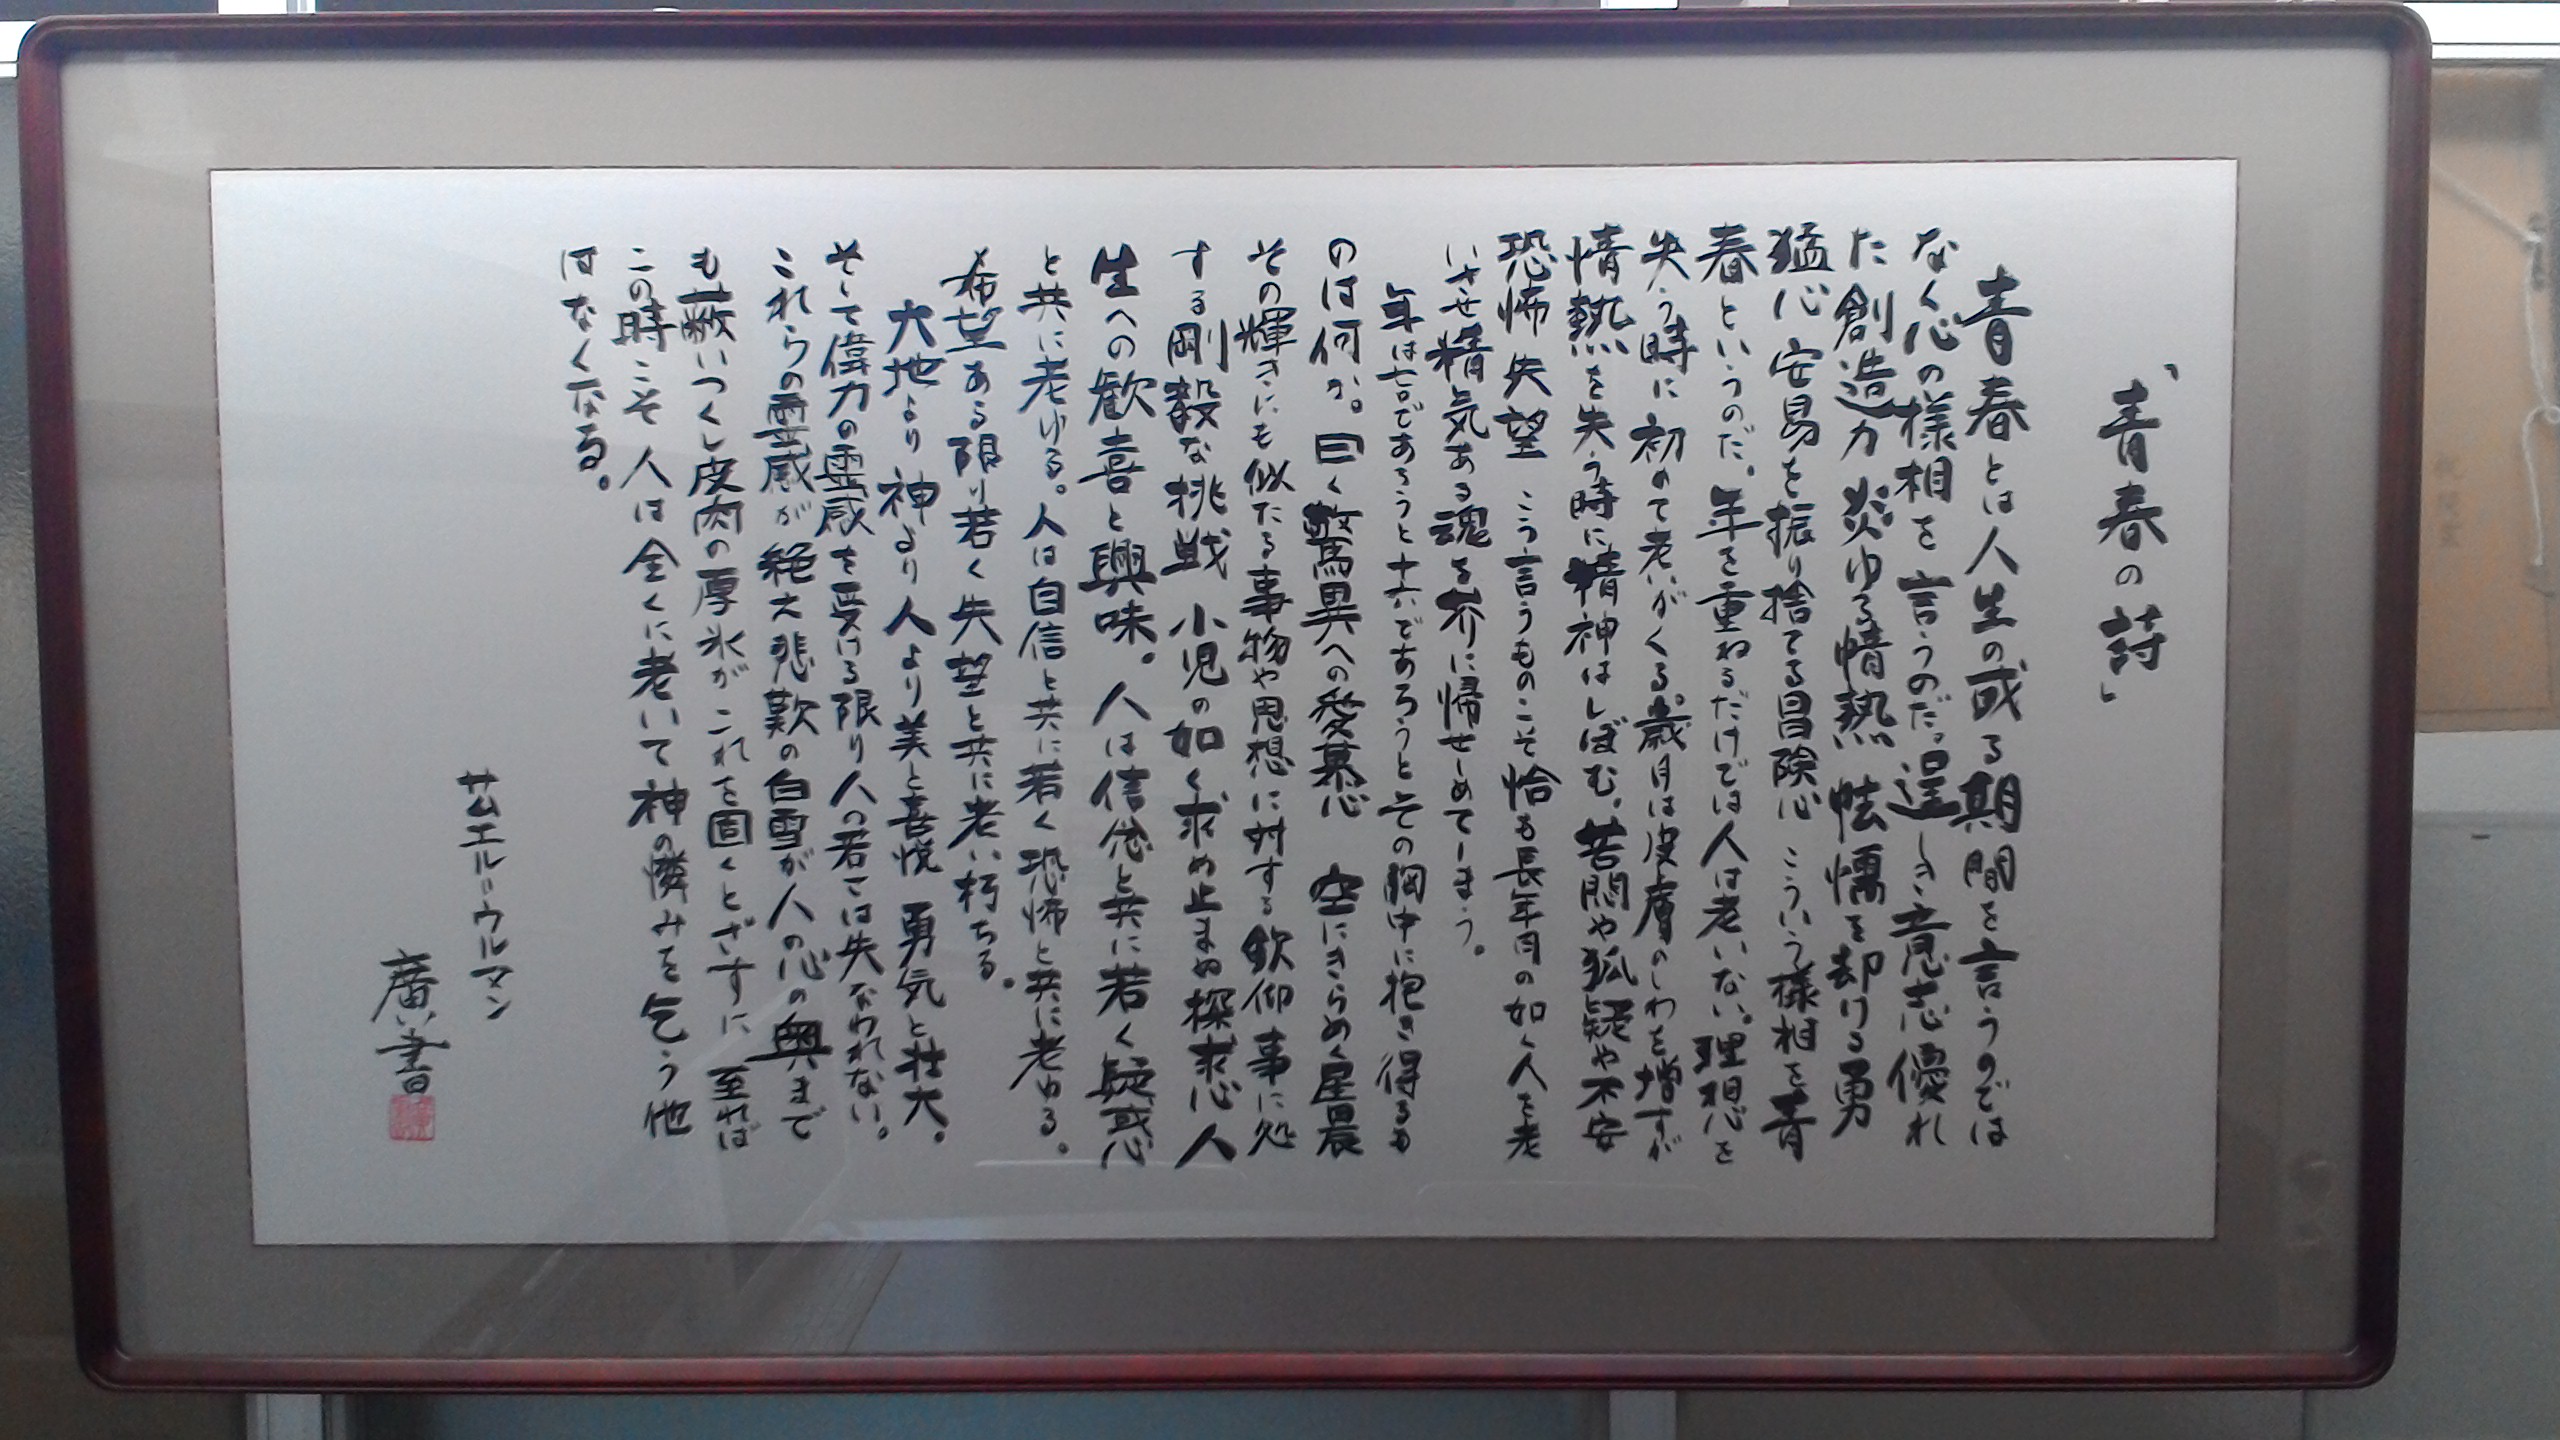 「青春の詩」
青春とは人生の或る期間を言うのでは
なく心の様相を言うのだ。逞しき意志優れ
た創造力炎ゆる情熱怯懦を却ける勇
猛心安易を振り捨てる冒険心こういう様相を青
春というのだ。年を重ねるだけでは人は老いない。理想を
失う時に初めて老いがくる。歳月は皮膚のしわを増すが
情熱を失う時に精神はしぼむ。苦悶や狐疑や不安
恐怖失望こう言うものこそ恰も長年月の如く人を老
いさせ精気ある魂を芥に帰せしめてしまう。
年は七十であろうと十六であろうとその胸中に抱き得るも
のは何か。曰く驚異への愛慕心 空にきらめく星晨
その輝きにも似たる事物や思想に対する欽仰事に処
する剛毅な挑戦 小児の如く求め止まぬ探求心人
生への歓喜と興味。人は信念と共に若く疑惑
と共に老ゆる。人は自信と共に若く恐怖と共に老ゆる。
希望ある限り若く失望と共に老い朽ちる。
大地より神より人より美と喜悦 勇気と壮大。
そして偉力の霊感を受ける限り人の若さは失なわれない。
これらの霊感が絶え悲歎の白雪が人の心の奥まで
も蔽いつくし皮肉の厚氷がこれを固くとざすに至れば
この時こそ人は全くに老いて神の憐みを乞う他
はなくなる。
サムエル=ウルマン
廣い書